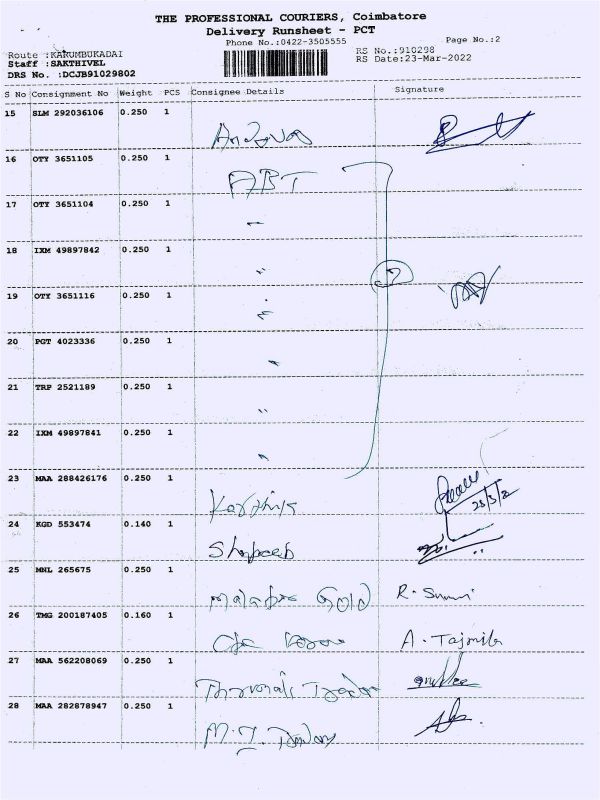 THE PROFESSIONAL COURIERS, Coimbatore
Delivery Runsheet - PCT
Phone No.:0422-3505555
Page No.:2
Route :KARUMBUKADAI
RS No.:910298
Staff :SAKTHIVEL
RS Date:23-Mar-2022
DRS No. :DCJB91029802
S No Consignment No Weight PCS Consignee Details Signature
15 SLM 292036106 0.250 1
16 OTY 3651105 0.250 1 ABT
17 OTY 3651104 0.250 1
18 IXM 49897842 0.250 1 "
19 OTY 3651116 0.250 1
20 PGT 4023336 0.250 1
21 TRP 2521189 0.250 1 "
22 IXM 49897841 0.250 1
23 MAA 288426176 0.250 1 Karthik
24 KGD 553474 0.140 1
25 MNL 265675 0.250 1 Gold
26 TMG 200187405 0.160 1 A. Tajmila
27 MAA 562208069 0.250 1
28 MAA 282878947 0.250 1